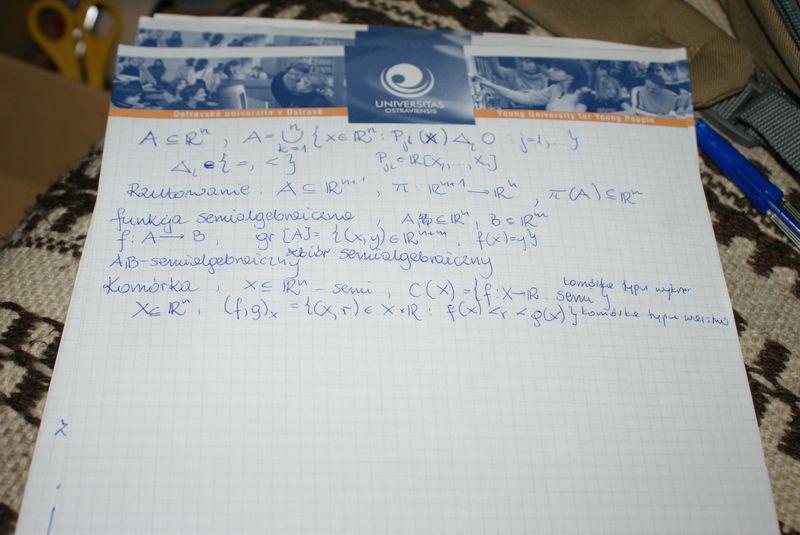 UNIVERSITAS
OSTRAVIENSIS
Ostravská univerzita v Ostravě
Young University for Young People
A ⊆ ℝⁿ, A = ⋃ⁿₖ₌₁ {x ∈ ℝⁿ : Pⱼₗ(x) Δₗ 0 : j=1,...}
Δₗ ∈ {=, <} Pⱼₗ ∈ ℝ[x₁,...,xₙ]
Rzutowanie : A ⊆ ℝⁿ⁺¹, π : ℝⁿ⁺¹ → ℝⁿ, π(A) ⊆ ℝⁿ
funkcja semialgebraiczna, A ⊆ ℝⁿ, B ⊆ ℝᵐ
f: A → B, gr [A] = {(x,y) ∈ ℝⁿ⁺ᵐ : f(x)=y}
A,B-semialgebraiczny zbiór semialgebraiczny
Komórka, X ⊆ ℝⁿ - semi, C(X) = {f: X→ℝ : semi} komórka typu wykres
X ⊆ ℝⁿ, (f,g)ₓ = {(x,r) ∈ X×ℝ : f(x) < r < g(x)} komórka typu